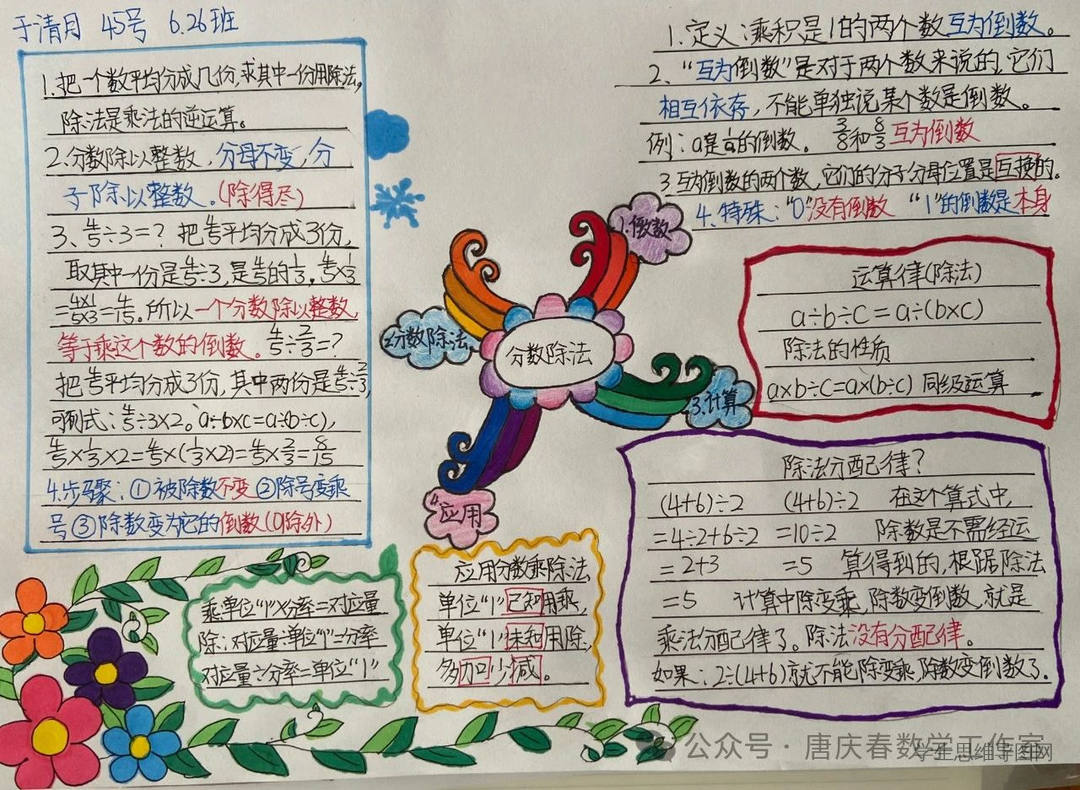 于清月 45号 6.26班
1.把一个数平均分成几份,求其中一份用除法,
除法是乘法的逆运算。
2.分数除以整数,分母不变,分
子除以整数。(除得尽)
3、4/5÷3=? 把4/5平均分成3份,
取其中一份是4/5÷3,是4/5的1/3,4/5×1/3
=4×1/5×3=4/15。所以一个分数除以整数,
等于乘这个数的倒数。4/5÷2/3=?
把4/5平均分成3份,其中两份是4/5÷2/3,
可列式:4/5÷3×2。a÷b×c=a÷(b÷c),
4/5×1/3×2=4/5×(1/3×2)=4/5×2/3=8/15
4.步骤:①被除数不变②除号变乘
号③除数变为它的倒数(0除外)
1.定义:乘积是1的两个数互为倒数。
2、“互为倒数”是对于两个数来说的,它们
相互依存,不能单独说某个数是倒数。
例:a是1/a的倒数。 3/8和8/3互为倒数
3互为倒数的两个数,它们的分子分母位置是互换的。
4.特殊:“0”没有倒数 “1”的倒数是本身
1.倒数
2分数除法
分数除法
3.计算
应用
运算律(除法)
a÷b÷c=a÷(b×c)
除法的性质
a×b÷c=a×(b÷c) 同级运算
除法分配律?
(4+6)÷2 (4+6)÷2 在这个算式中,
=4÷2+6÷2 =10÷2 除数是不需经运
=2+3 =5 算得到的,根据除法
=5 计算中除变乘,除数变倒数,就是
乘法分配律了。除法没有分配律。
如果:2÷(4+6)就不能除变乘,除数变倒数了.
乘:单位“1”×分率=对应量
除:对应量÷单位“1”=分率
对应量÷分率=单位“1”
应用分数乘除法
单位“1”已知用乘,
单位“1”未知用除,
多加少减。
公众号·唐庆春数学工作室
学生思维导图网